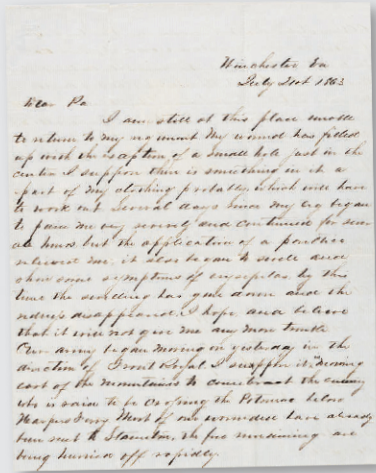 Winchester Va
July 21st 1863
Dear Pa
I am still at this place unable
to return to my regiment. My wound has filled
up with the exception of a small hole just in the
center I suppose there is something in it a
part of my clothing probably which will have
to work out. Several days since my leg began
to pain me very severely and continued for
hours but the application of a poultice
relieved me, it also began to swell and
show some symptoms of erysipelas by this
time the swelling has gone down and the
redness disappeared. I hope and believe
that it will not give me any more trouble
Our army began moving on yesterday in the
direction of Front Royal I suppose it is moving
east of the mountains to counteract the enemy
who is said to be crossing the Potomac below
Harpers Ferry Most of our wounded have already
been sent to Staunton, the few remaining are
being hurried off rapidly.